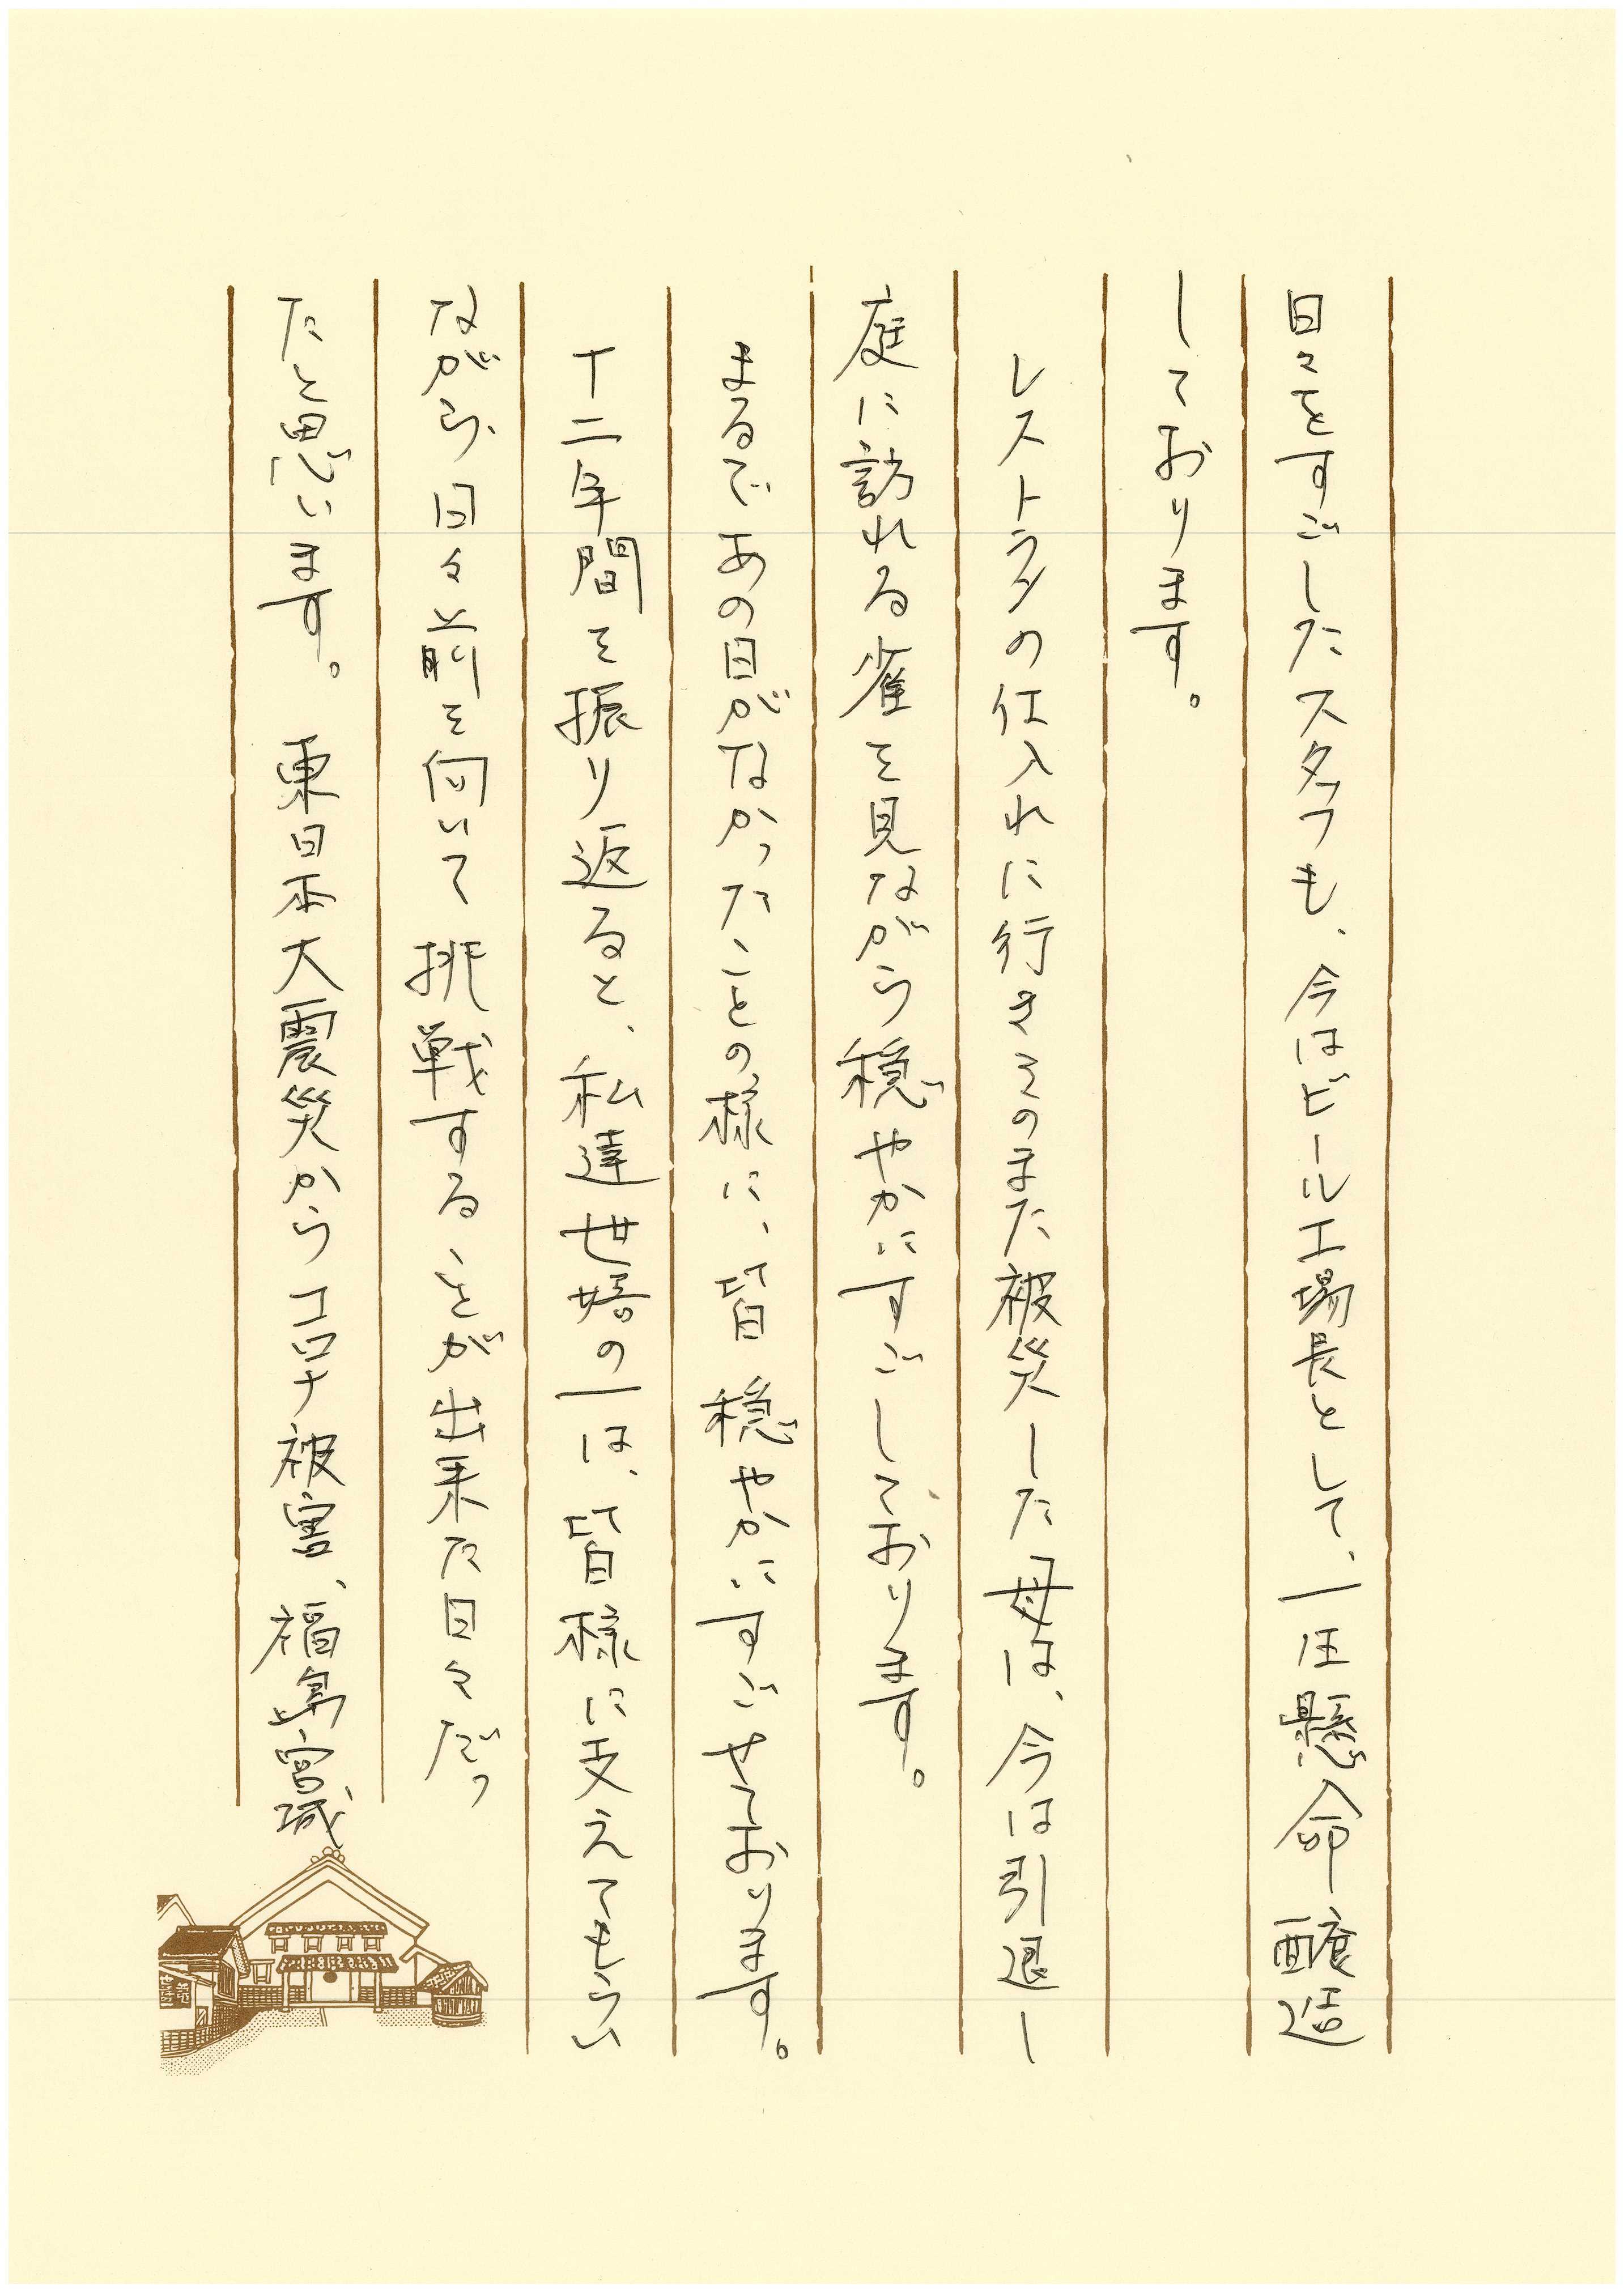 日々をすごしたスタッフも、今はビール工場長として、一生懸命醸造
しております。
レストランの仕入れに行きそのまま被災した母は、今は引退し
庭に訪れる雀を見ながら穏やかにすごしております。
まるであの日がなかったことの様に、皆穏やかにすごせております。
十二年間を振り返ると、私達世嬉の一は、皆様に支えてもらい
ながら、日々前を向いて挑戦することが出来た日々だっ
たと思います。 東日本大震災からコロナ被害、福島宮城